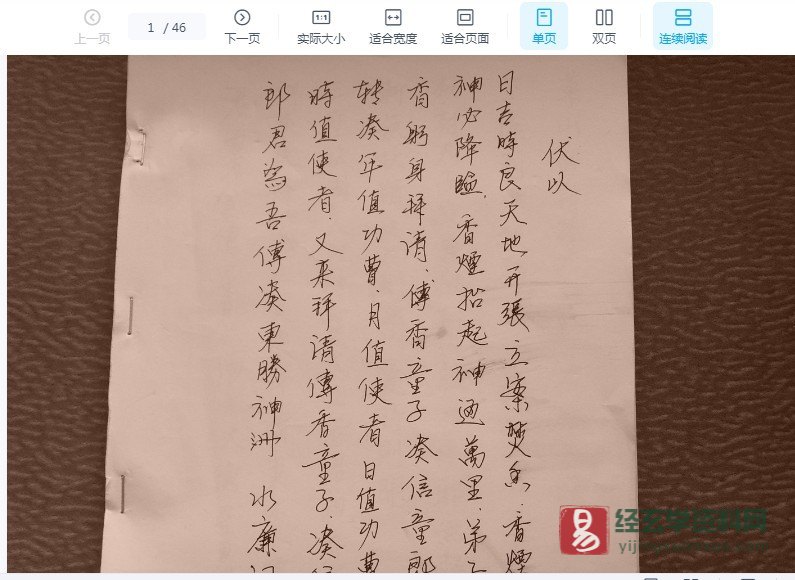 上一页
1 / 46
下一页
实际大小
适合宽度
适合页面
单页
双页
连续阅读
伏以
日吉時良天地开張立案焚香.香煙
神必降臨.香煙抬起神通萬里.弟子
香躬身拜请.傅香童子凑信童郎
转凑年值功曹.月值使者日值功曹
時值使者.又来拜请傅香童子.凑
郎君為吾傅凑東勝神洲 水廉
易
经玄学资料网